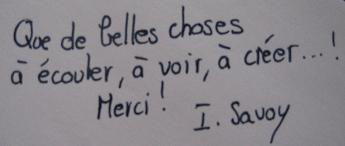 Que de belles choses
à écouter, à voir, à créer...!
Merci!
I. Savoy